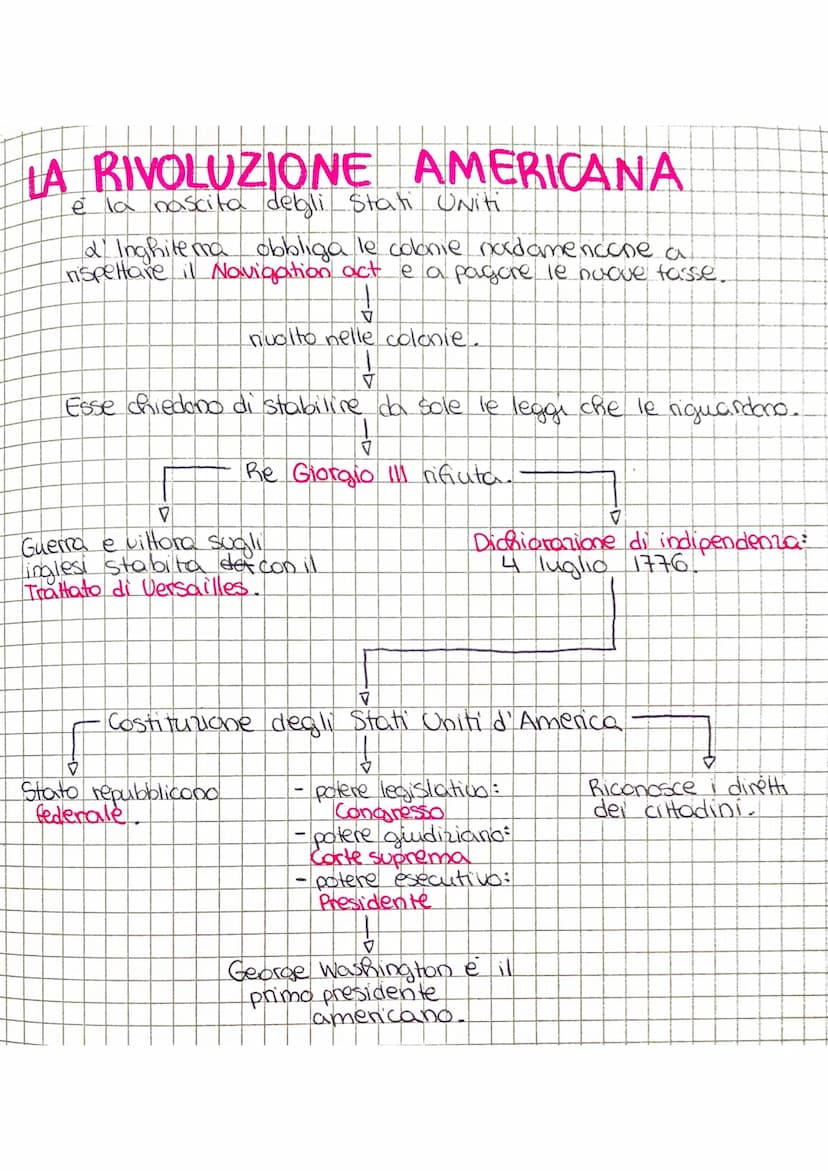 LA RIVOLUZIONE AMERICANA
e la nascita degli Stati Uniti
d'Inghiterra obbliga le colonie nordamericane a
rispettare il Navigation act e a pagare le nuove tasse.
rivolto nelle colonie.
Esse chiedono di stabilire da sole le leggi che le riguardano.
Re Giorgio III rifiuta.
Guerra e vittora sugli
inglesi stabita con il
Trattato di Versailles.
Dichiarazione di indipendenza:
4 luglio 1776.
Costituzione degli Stati Uniti d'America
Stato repubblicano
federale.
- potere legislativo:
Congresso
- potere giudiziario:
Corte suprema
- potere esecutivo:
Presidente
Riconosce i diretti
dei cittadini.
George Washington è il
primo presidente
americano.